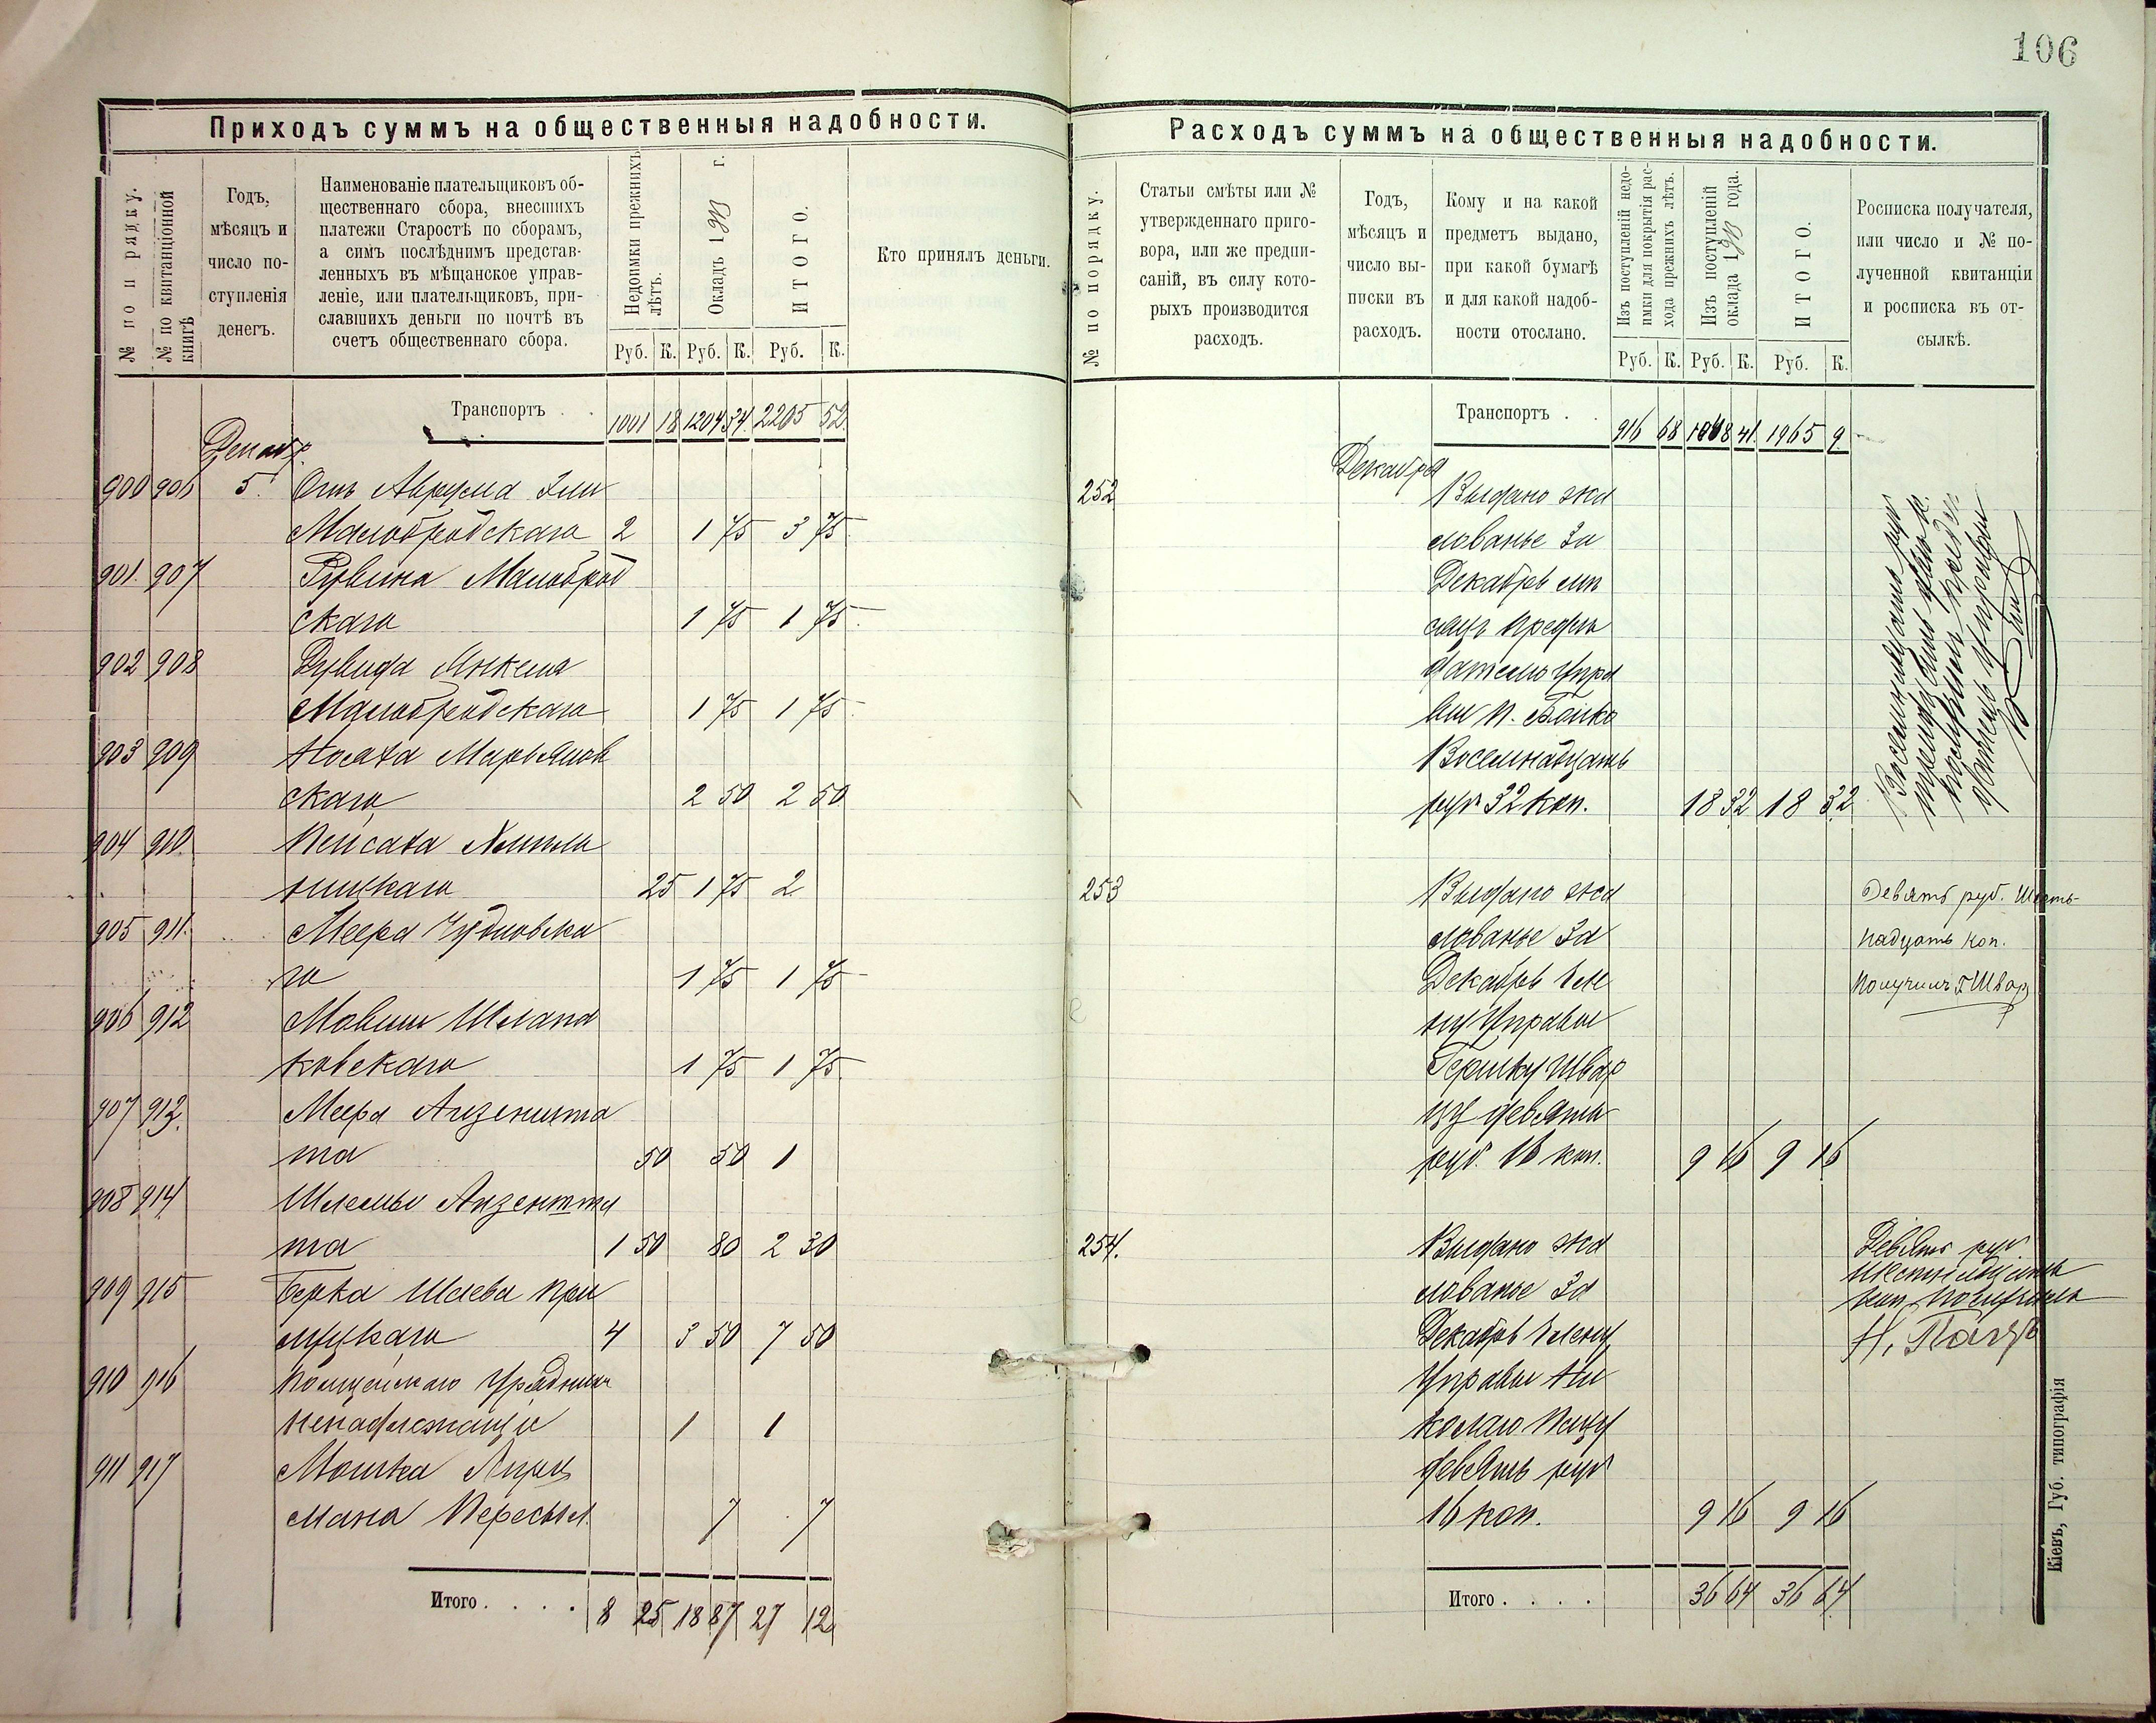 106
Приходъ суммъ на общественныя надобности.
№ по порядку.
№ по квитанціонной книгѣ
Годъ,
мѣсяцъ и
число по-
ступленія
денегъ.
Наименованіе плательщиковъ об-
щественнаго сбора, внесшихъ
платежи Старостѣ по сборамъ,
а симъ послѣднимъ представ-
ленныхъ въ мѣщанское управ-
леніе, или плательщиковъ, при-
славшихъ деньги по почтѣ въ
счетъ общественнаго сбора.
Недоимки прежнихъ
лѣтъ.
Окладъ 1 г.
ИТОГО.
Кто принялъ деньги.
Руб. К. Руб. К. Руб. К.
Транспортъ . . 1001 18 1204 34 2205 52
Декабр.
900 906 5. Отъ Аврума Эли
Малобродскаго 2 1 75 3 75
901. 907 Рувина Малоброд
скаго 1 75 1 75
902 908 Дувида Янкеля
Малобродскаго 1 75 1 75
903 909 Носаха Марьянов
скаго 2 50 2 50
904 910 Пейсаха Хмель
ницкаго 25 1 75 2
905 911. Меера Чудновска
го 1 75 1 75
906 912 Мовши Шпана
ковскаго 1 75 1 75
907 913. Меера Айзеншта
та 50 50 1
908 914 Шлемы Айзеншта
та 1 50 80 2 30
909 915 Берка Шаева При
луцкаго 4 3 50 7 50
910 916 Полицейскаго Урядника
Ненадлежащіе 1 1
911 917 Мошка
мана Пересыл. 7 7
Итого . . . . 8 25 18 87 27 12
Расходъ суммъ на общественныя надобности.
№ по порядку.
Статьи смѣты или №
утвержденнаго приго-
вора, или же предпи-
саній, въ силу кото-
рыхъ производится
расходъ.
Годъ,
мѣсяцъ и
число вы-
писки въ
расходъ.
Кому и на какой
предметъ выдано,
при какой бумагѣ
и для какой надоб-
ности отослано.
Изъ поступленій недо-
имки для покрытія рас-
хода прежнихъ лѣтъ.
Изъ поступленій
оклада 1 года.
ИТОГО.
Росписка получателя,
или число и № по-
лученной квитанціи
и росписка въ от-
сылкѣ.
Руб. К. Руб. К. Руб. К.
Транспортъ . . 916 68 1048 41 1965 9
Декабря
252 Выдано жа
лованье за
Декабрь мѣ
сяцъ Предсѣ
дателю Упра
вы П. Бойко
Восемнадцать
руб 32 коп. 18 32 18 32
Восемнадцать руб
тридцать два к.
получилъ Предсѣ
датель Управы
253 Выдано жа
лованье за
Декабрь Чле
ну Управы
Гершку Швар
цу девять
руб. 16 коп. 9 16 9 16
Девять руб. Шесть-
надцать коп.
Получилъ Г Шварц
254. Выдано жа
лованье за
Декабрь Члену
Управы Ни
колаю Пацу
девять руб
16 коп. 9 16 9 16
Девять руб.
шестнадцать
коп. получилъ
Н. Пацъ
Итого . . . . 36 64 36 64
Кіевъ, Губ. типографія